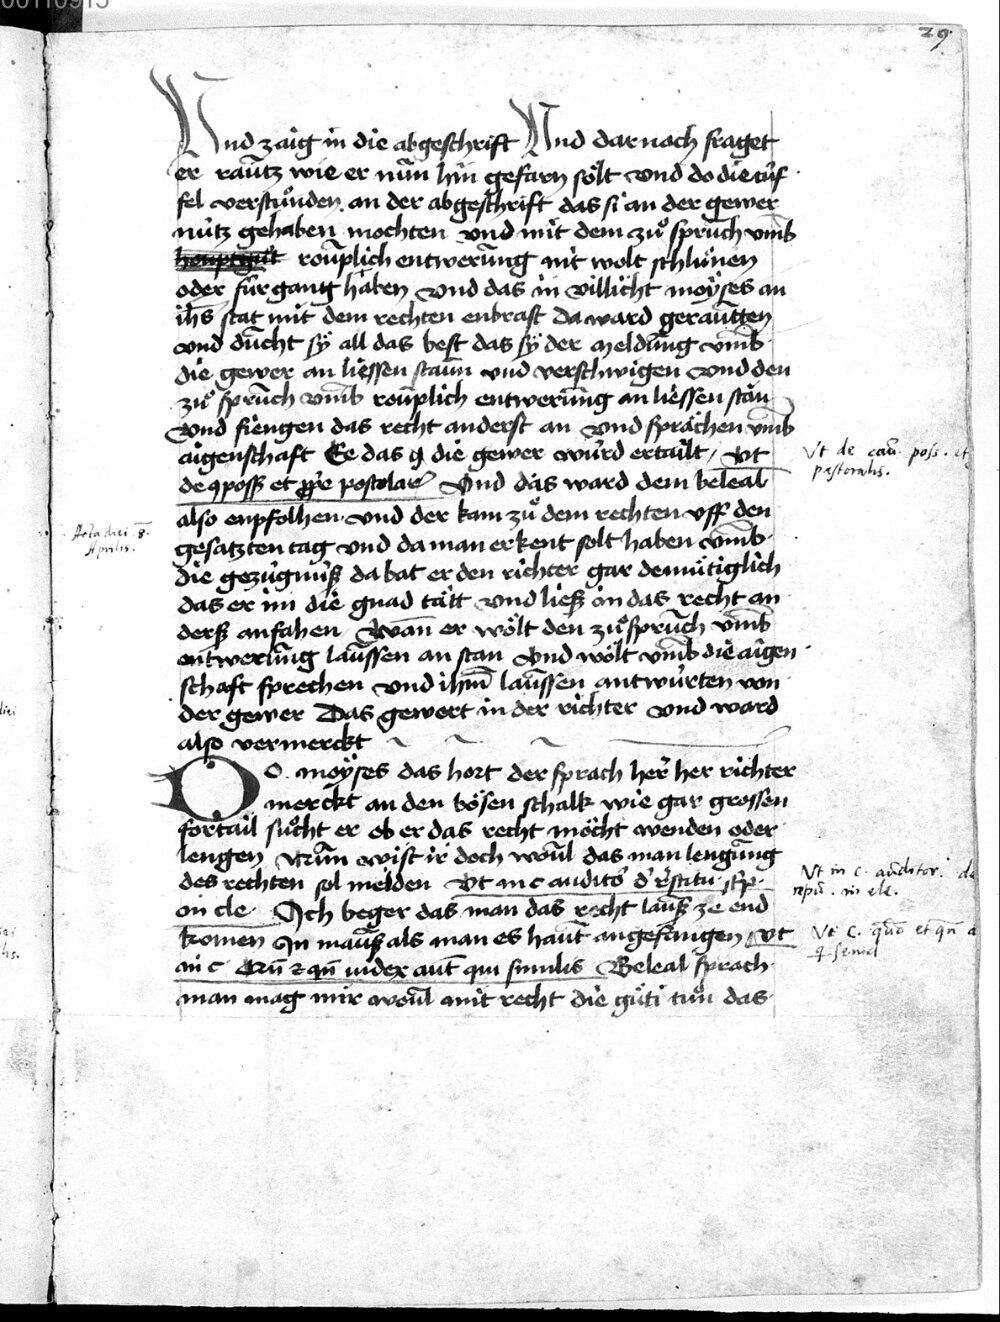 29
Und zaig in die abgeschrift Und dar nach fraget
er rautz wie er nun hin gefarn sölt vnd do die tüf
fel verstuͦnden an der abgeschrift das si an der gewer
nütz gehaben mochten vnd mit dem zuͦ spruch vmb
houptgut rouplich entwerung nit wolt schlunen
oder fürgang haben vnd das in villicht moÿses an
ihs stat mit dem rechten enbrast Da ward geraútten
vnd dúcht sÿ all das best das sÿ der meldung vmb
die gewer an liessen staun vnd verschwigen vnd den
zuͦ spruch vmb rouplich entwerung an liessen stan
vnd fiengen das recht anderst an vnd sprächen vmb
aigenschaft Ee das q die gewer würd ertailt / vt
de q poss et ppe postolae Vnd das ward dem beleal
also enpfolhen vnd der kam zuͦ dem rechten vff den
gesatzten tag vnd da man erkent solt haben vmb
die gezügnüß da bat er den richter gar demütiglich
das er im die gnad tätt vnd ließ in das recht an
derß anfahen Wan er wölt den zuͦspruch vmb
entwerung laussen an stan Vnd wölt vmb die aigen
schaft sprechen vnd ihm laussen antwürten von
der gewer Das gewert in der richter vnd ward
also vermerckt
DO moÿses das hort der sprach her her richter
merckt an den bösen schalk wie gar grossen
fortail suͦcht er ob er das recht möcht wenden oder
lengen Nun wist ir doch woul das man lengung
des rechten sol meiden Vt in c audito d restitu sp
in cle Ich beger das man das recht lauß ze end
komen In mauß als man es haut angefangen vt
in c qn index aut qui similis Beleal sprach
man mag mir woul mit recht die güti tuͦn das
Vt de cau poss. et
pastoralis.
Acta diei 8
Aprilis.
Vt in c. auditor. de
in cle.
Vt C.